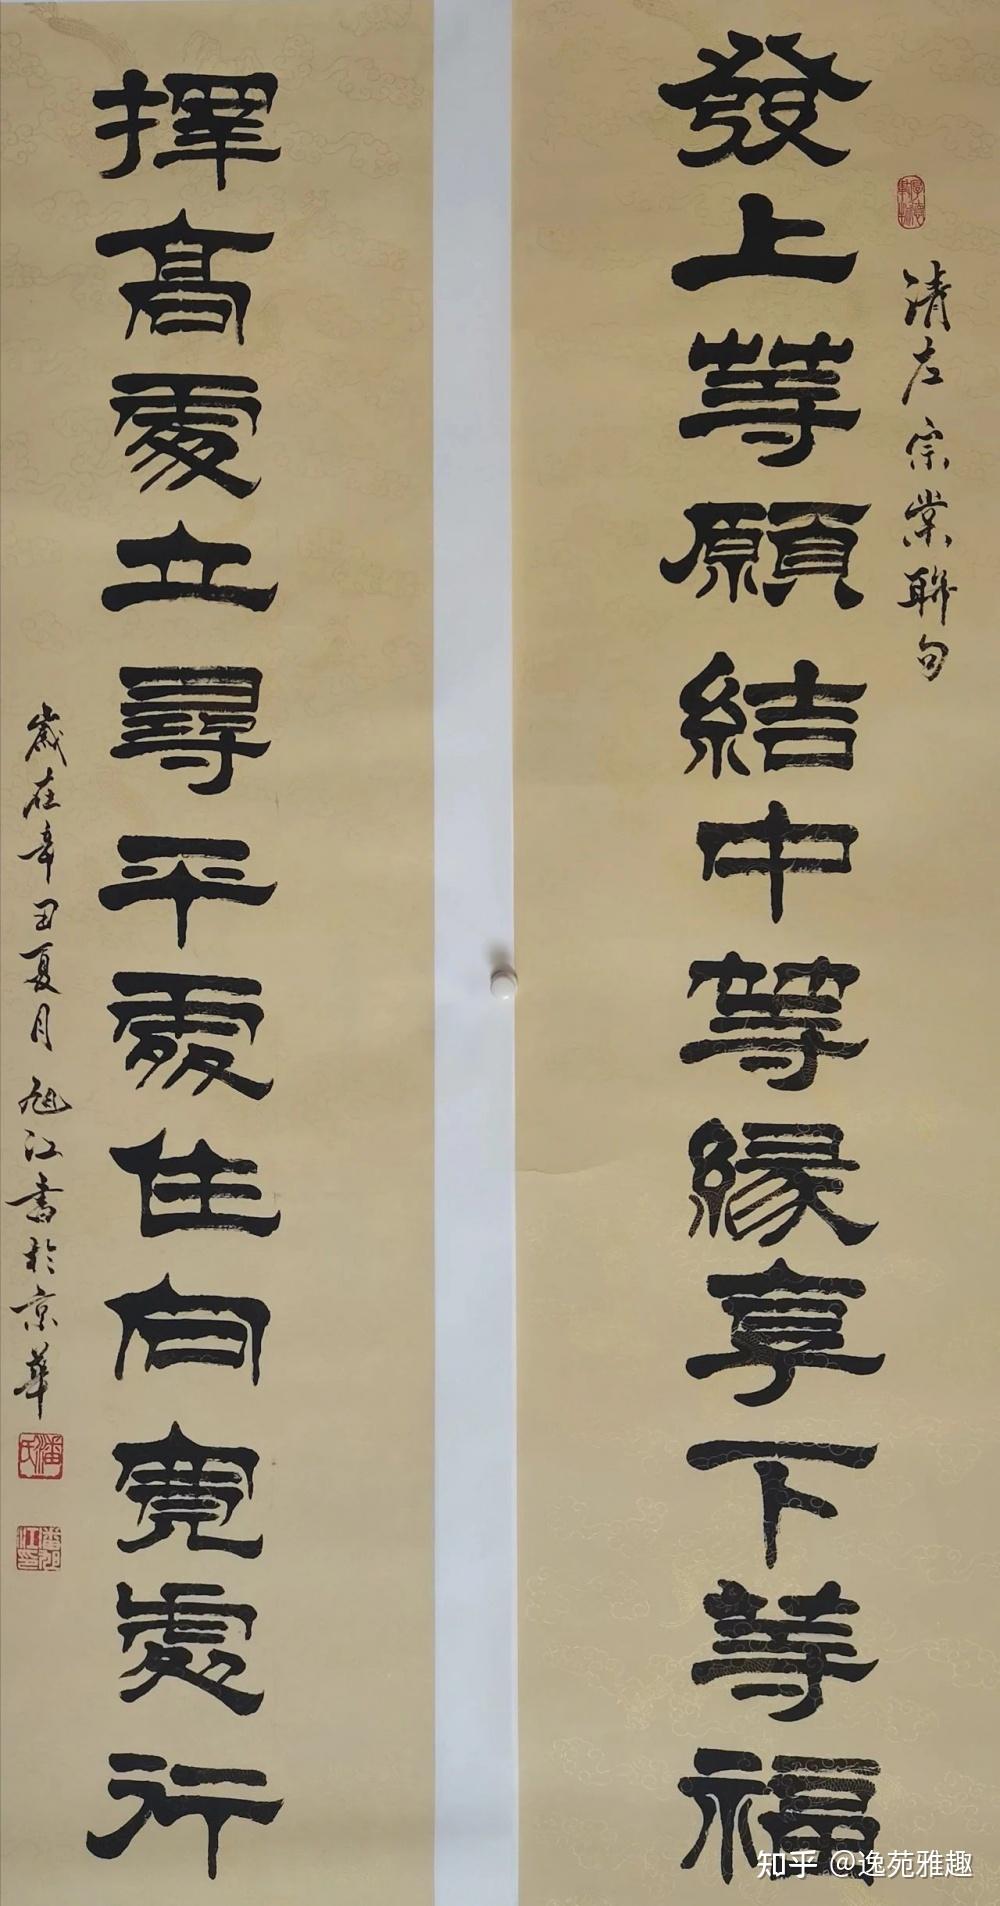 清左宗棠聯句
發上等願結中等緣享下等福
擇高處立尋平處住向寬處行
歲在辛丑夏月旭江書於京華
潘氏
知乎 @逸苑雅趣